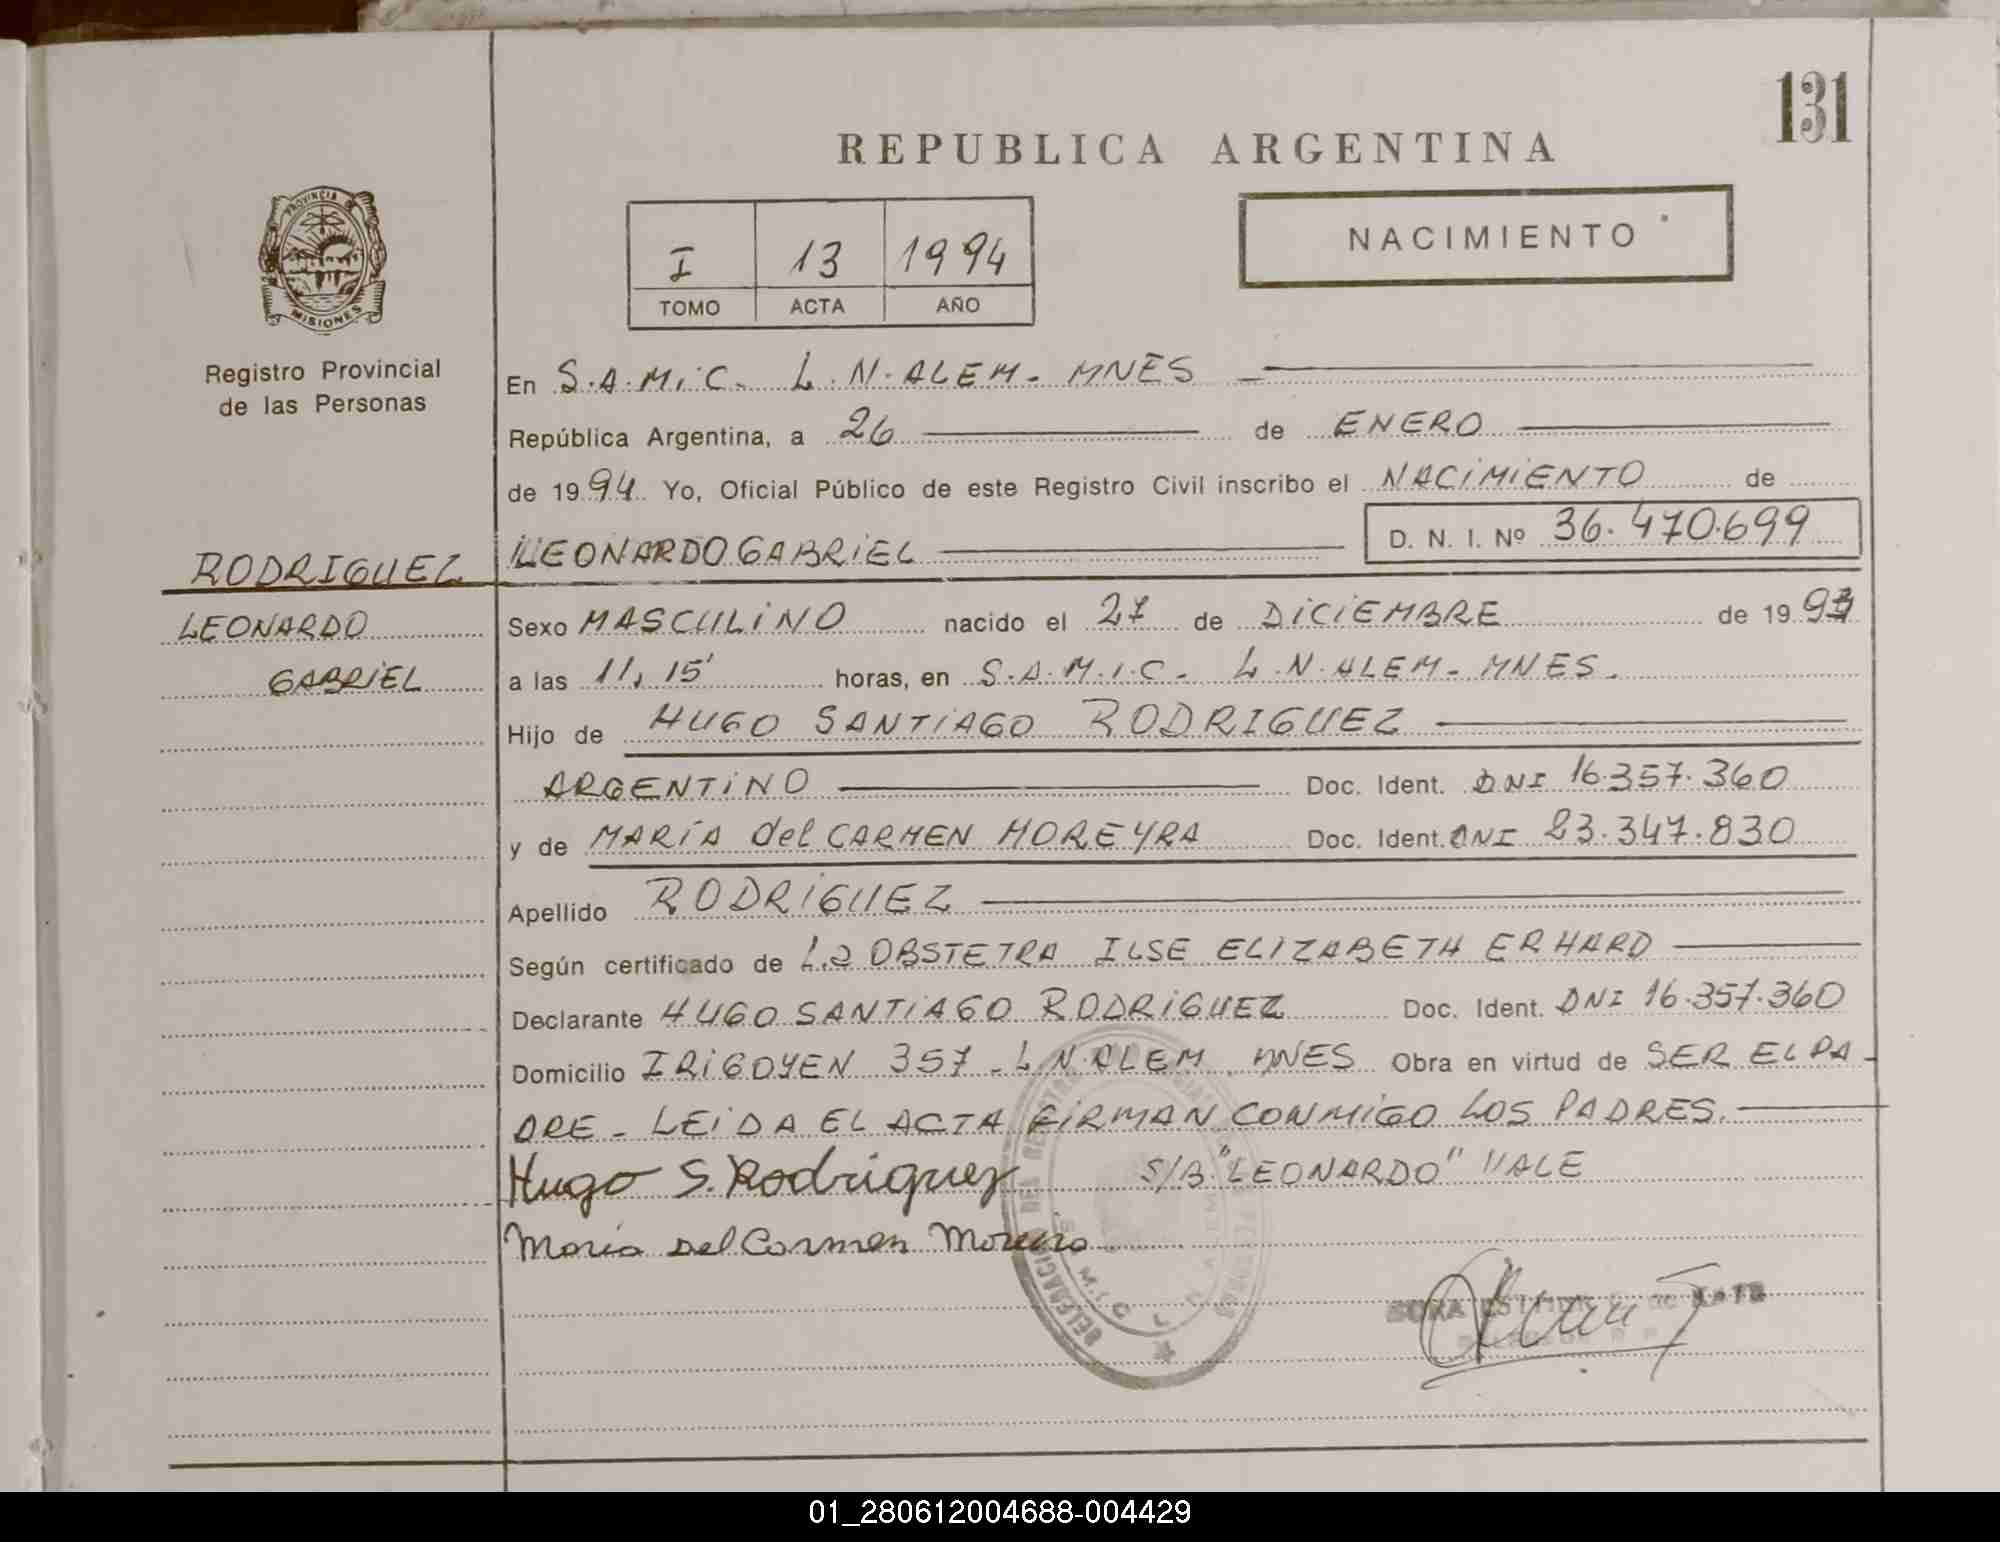 131
REPUBLICA ARGENTINA
PROVINCIA DE
MISIONES
Registro Provincial
de las Personas
I 13 1994
TOMO ACTA AÑO
NACIMIENTO
En S.A.M.i.C. L.N.ALEM - MNES
República Argentina, a 26 de ENERO
de 1994 Yo, Oficial Público de este Registro Civil inscribo el NACIMIENTO de
RODRIGUEZ
LEONARDO GABRIEL D. N. I. Nº 36.470.699
LEONARDO
GABRIEL
Sexo MASCULINO nacido el 27 de DICIEMBRE de 1993
a las 11,15' horas, en S.A.M.I.C. - L.N.ALEM - MNES.
Hijo de HUGO SANTIAGO RODRIGUEZ
ARGENTINO Doc. Ident. DNI 16.357.360
y de MARIA del CARMEN MOREYRA Doc. Ident. DNI 23.347.830
Apellido RODRIGUEZ
Según certificado de La OBSTETRA ILSE ELIZABETH ERHARD
Declarante HUGO SANTIAGO RODRIGUEZ Doc. Ident. DNI 16.357.360
Domicilio IRIGOYEN 357 - L.N.ALEM. MNES Obra en virtud de SER EL PA-
DRE - LEIDA EL ACTA FIRMAN CONMIGO LOS PADRES.
Hugo S. Rodriguez S/B. "LEONARDO" VALE
Maria Del Carmen Moreira
01_280612004688-004429